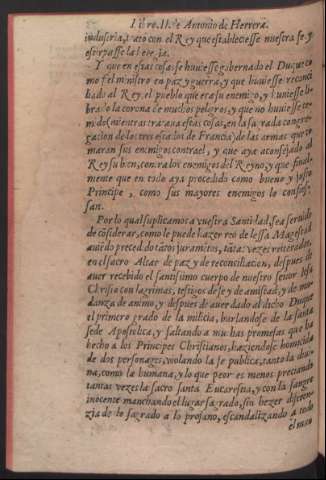 Libro. II. de Antonio de Herrera.
industria, trato con el Rey que estableciesse nuestra fe y
estirpasse la heregia.
Y que en estas cosas se huuiesse gobernado el Duque co
mo fiel ministro en paz y guerra, y que huuiesse reconci
liado al Rey, el pueblo que era su enemigo, y huuiesse li
brado la corona de muchos peligros, y que no huuiesse te-
mido (mientras trataua estas cosas, en la sagrada congre-
gacion de los tres estados de Francia) de las armas que to
maran sus enemigos contra el, y que aya aconsejado al
Rey su bien, contra los enemigos del Reyno, y que final-
mente que en todo aya procedido como bueno y justo
Principe, como sus mayores enemigos lo confies-
san.
Por lo qual suplicamos a vuestra Santidad, sea seruido
de cōsiderar, como le puede hazer reo de lessa Magestad
auiēdo precedido tātos juramētos, tātas vezes reiterados,
en el sacro Altar de paz y de reconciliacion, despues de
auer recebido el santissimo cuerpo de nuestro señor Iesu
Christo con lagrimas, testigos de fe y de amistad, y de mu
dança de animo, y despues de auer dado al dicho Duque
el primero grado de la milicia, burlandose de la santa
sede Apostolica, y faltando a muchas promesas que ha
hecho a los Principes Christianos, haziendose homicida
de dos personages, violando la fe publica, tanto la diui-
na, como la humana, y lo que peor es menos preciando
tantas vezes la sacro santa Eucaristia, y con la sangre
inocente manchando el lugar sagrado, sin hezer diferen-
zia de lo sagrado a lo profano, escandalizando a todo
el